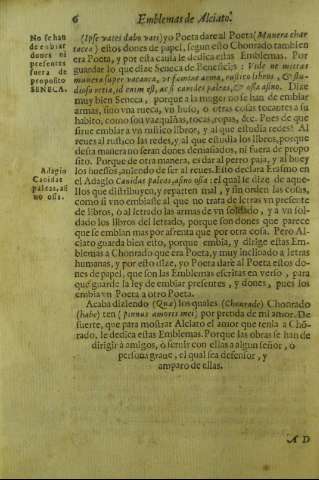 6 Emblemas de Alciato.
No se han de embiar dones ni presentes fuera de proposito SENECA.
(Ipse vates dabo vati) yo Poeta darè al Poeta (Munera chartacea) estos dones de papel, segun esto Chonrado tambien
era Poeta, y por esta causa le dedica estas Emblemas. Por
guardar lo que dize Seneca de Beneficijs: Vide ne mittas
munera super vacanea, vt fœminæ arma, rustico libros, & studioso retia, id enim est, ac si canidæ paleas, & ossa asino. Dize
muy bien Seneca, porque a la muger no se han de embiar
armas, sino vna rueca, vn huso, o otras cosas tocantes a su
habito, como son vazquiñas, tocas, ropas, &c. Pues de que
sirue embiar a vn rustico libros, y al que estudia redes? Al
reues al rustico las redes, y al que estudia los libros, porque
desta manera no seràn dones demasiados, ni fuera de proposito. Porque de otra manera, es dar al perro paja, y al buey
los huessos, auiendo de ser al reues. Esto declara Erasmo en
Adagio Canidæ paleas, asino ossa.
el Adagio Canidas paleas, asino ossa: el qual se dize de aquellos que distribuyen, y reparten mal, y sin orden las cosas,
como si vno embiasse al que no trata de letras vn presente
de libros, o al letrado las armas de vn soldado, y a vn soldado los libros del letrado, porque son dones que parece
que se embian mas por afrenta que por otra cosa. Pero Alciato guarda bien esto, porque embia, y dirige estas Emblemas a Chonrado que era Poeta, y muy inclinado a letras
humanas, y por esto dize, yo Poeta darè al Poeta estos dones de papel, que son las Emblemas escritas en verso, para
que guarde la ley de embiar presentes, y dones, pues los
embia vn Poeta a otro Poeta.
Acaba diziendo (Quæ) los quales (Chonrade) Chonrado
(habe) ten (pignus amoris mei) por prenda de mi amor. De
suerte, que para mostrar Alciato el amor que tenia a Chõrado, le dedica estas Emblemas. Porque las obras se han de
dirigir à amigos, ò seruir con ellas a algun señor, o
persona graue, el qual sea defensor, y
amparo de ellas.
A D